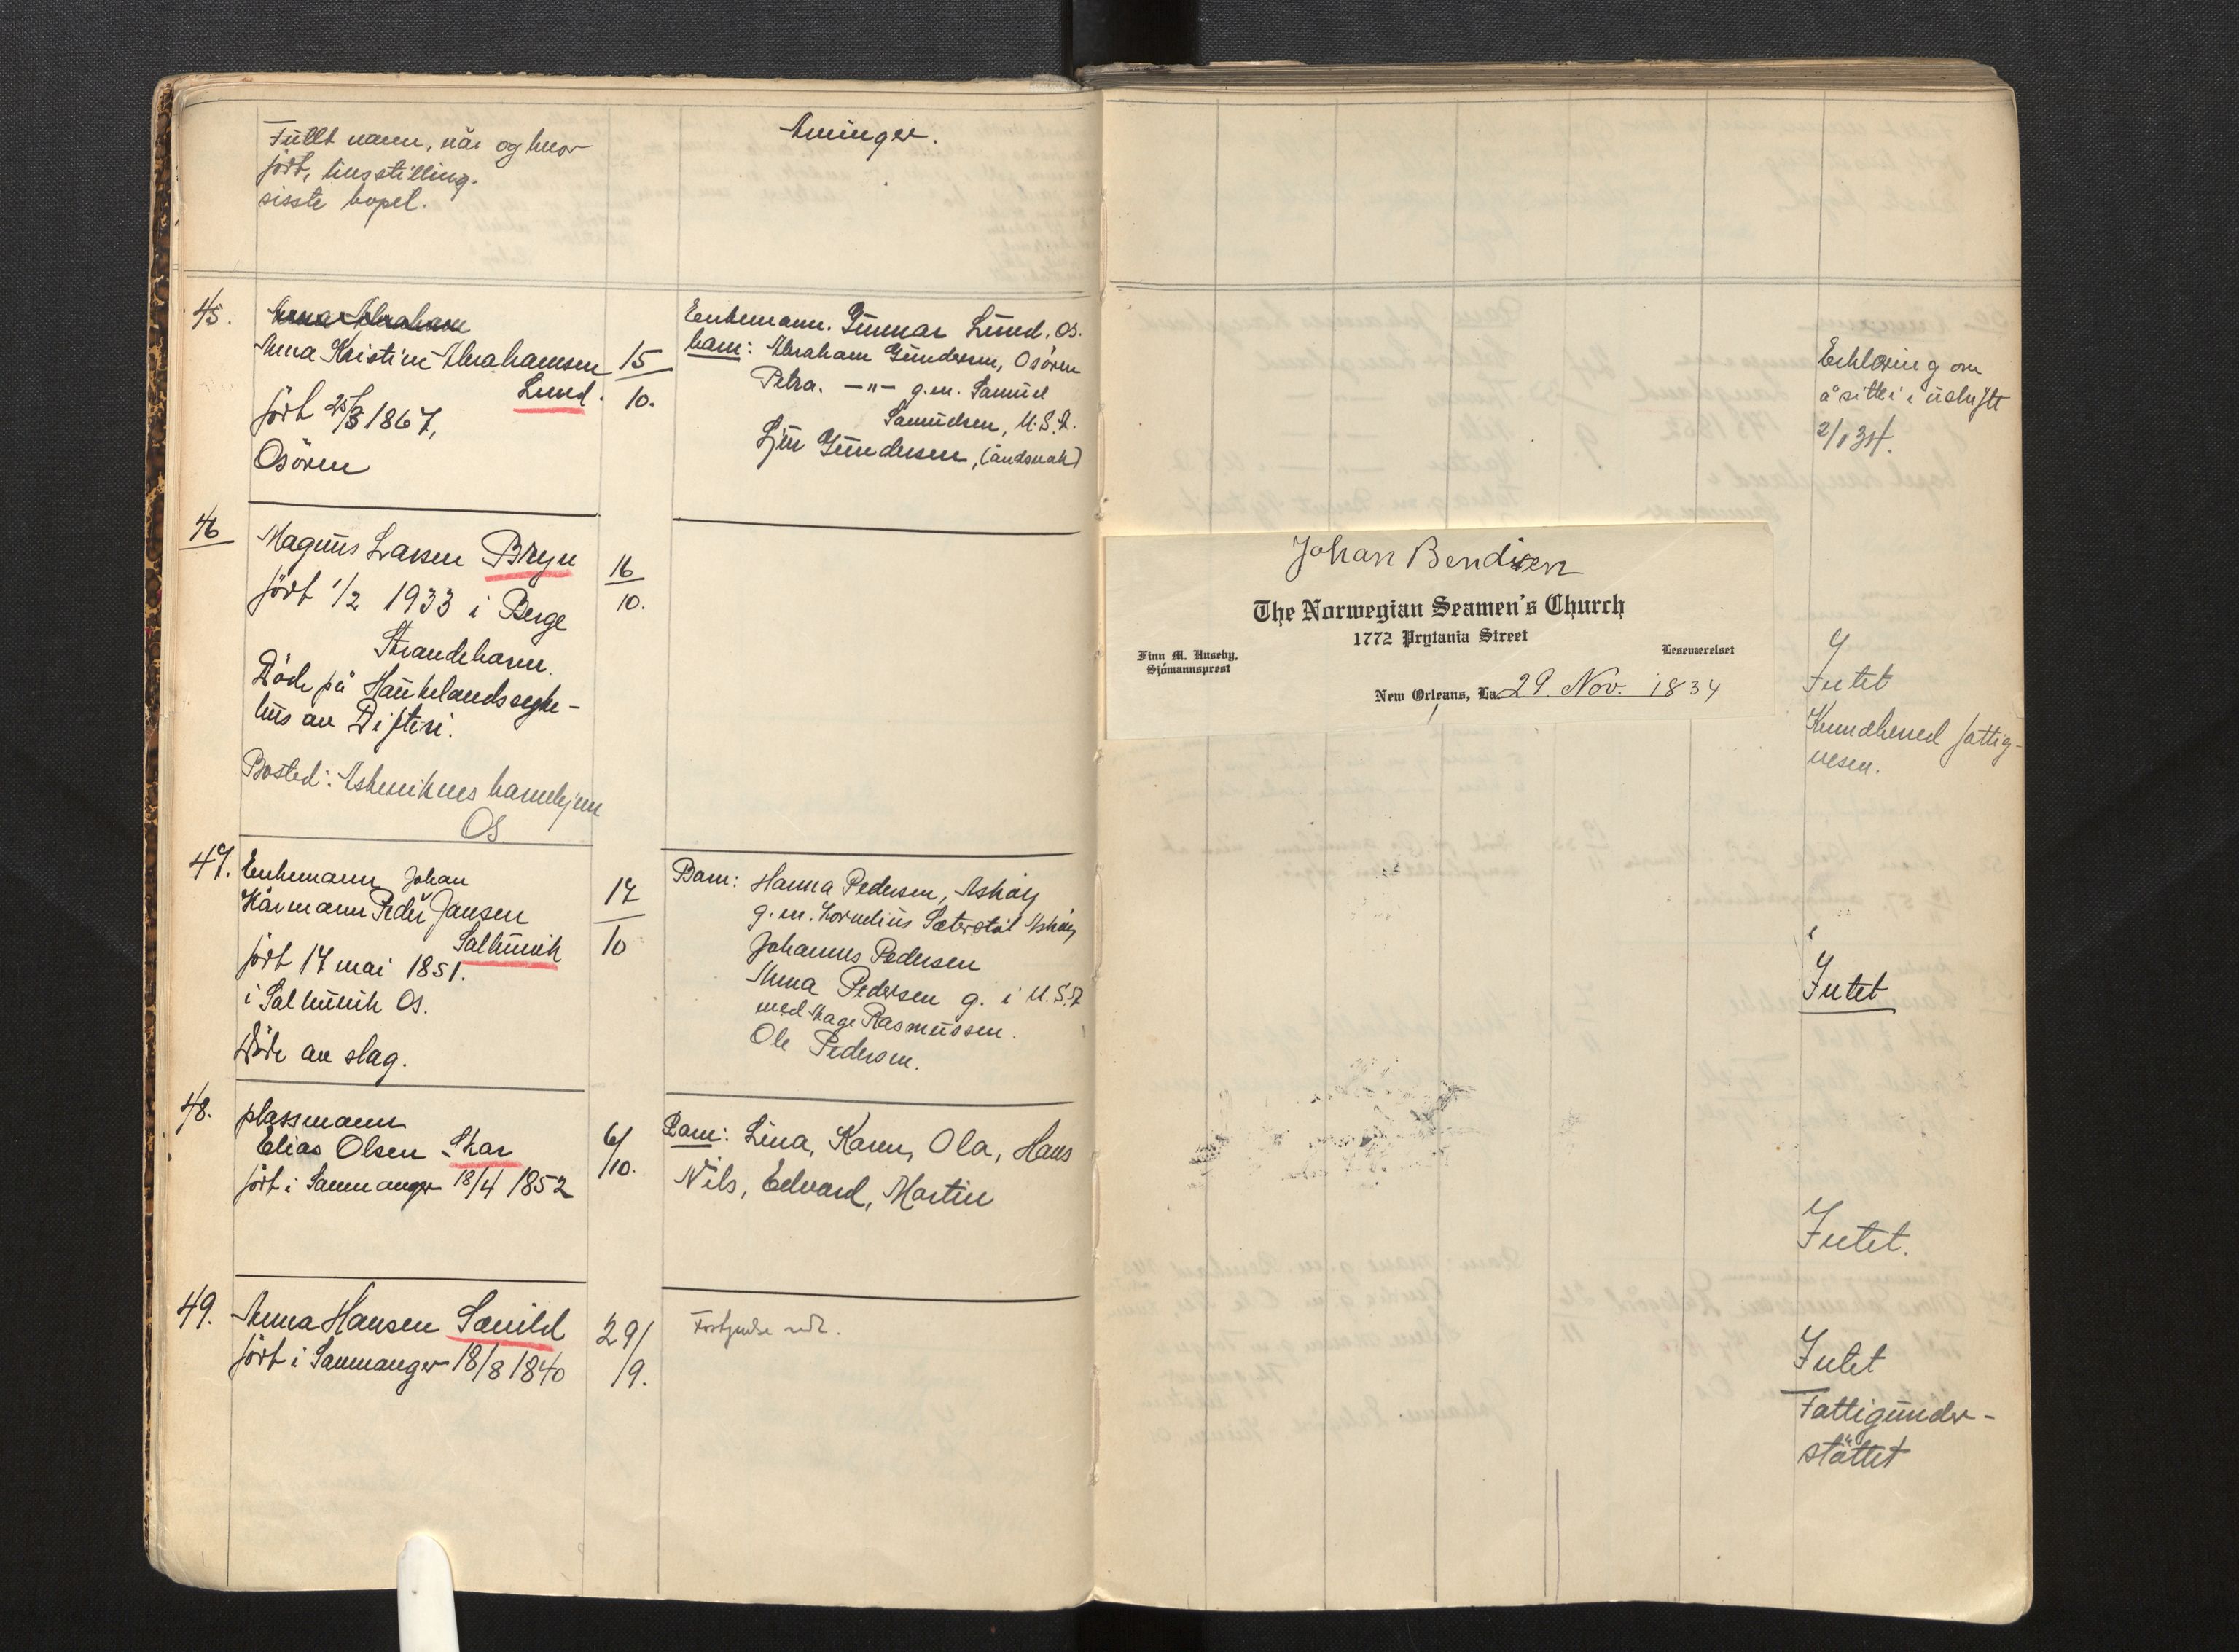 Fullt navn, når og hvor
født, livsstilling.
sisste bopel.
Arvinger.
45.
Anna Abraham
Anna Kristine Abrahamsen
Lund.
født 25/3 1867,
Osøren
15
10.
Enkemann. Gunnar Lund. Os.
barn: Abraham Gundersen, Osøren
Petra. —"— g.m. Samuel
Samuelsen, U.S.A.
Gundersen, (åndsvak)
Erklæring om
å sitte i uskiftt
46
Magnus Larsen Bryn
født 1/2 1933 i Berge
Strandebarm.
Døde på Haukelandssyke-
hus av Difteri.
Bosted: Askvikens barnehjem
Os.
16
10.
Johan Bendixen
The Norwegian Seamen's Church
1772 Prytania Street
Finn M. Huseby,
Sjömannsprest
Leseværelset
New Orleans, La. 29. Nov. 1834
Intet
fattig-
vesen.
47.
Enkemann Johan
Kårmann Peder Jansen
Salthuvik
født 17 mai 1851.
i Salthuvik Os.
Døde av slag.
17
10
Barn: Hanna Pedersen, Askøy
g.m. Kornelius Sæterstøl Askøy
Johannes Pedersen
Anna Pedersen g. i U.S.A
med Aage Rasmussen.
Ole Pedersen.
Intet
48.
plassmann
Elias Olsen Skar
født i Samnanger 18/4 1852
6/
/10.
Barn: Lina, Karen, Ola, Hans
Nils, Edvard, Martin
Intet.
49.
Anna Hansen Sævild
født i Samnanger 18/8 1840
29/
/9.
Intet
Fattigunder-
støttet